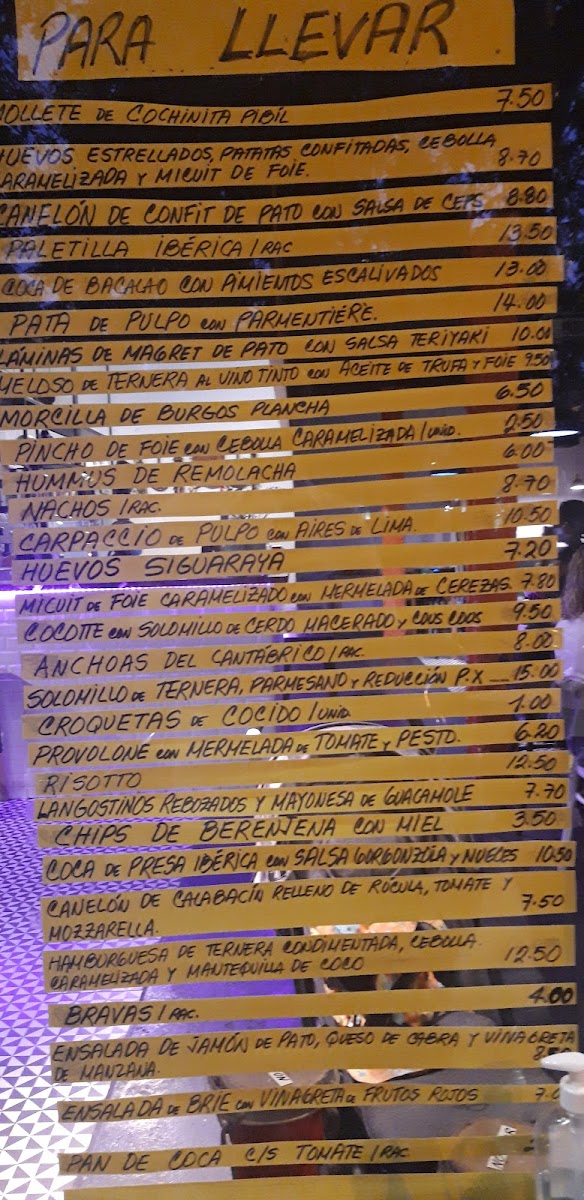 PARA LLEVAR
MOLLETE DE COCHINITA PIBIL 7.50
HUEVOS ESTRELLADOS, PATATAS CONFITADAS, CEBOLLA
CARAMELIZADA Y MICUIT DE FOIE. 8.70
CANELÓN DE CONFIT DE PATO CON SALSA DE CEPS 8.80
PALETILLA IBÉRICA / RAC 13.50
COCA DE BACALAO CON PIMIENTOS ESCALIVADOS 13.00
PATA DE PULPO CON PARMENTIÈRE. 14.00
LÁMINAS DE MAGRET DE PATO CON SALSA TERIYAKI 10.00
MELOSO DE TERNERA AL VINO TINTO CON ACEITE DE TRUFA Y FOIE 9.50
MORCILLA DE BURGOS PLANCHA 6.50
PINCHO DE FOIE CON CEBOLLA CARAMELIZADA / UNID. 2.50
HUMMUS DE REMOLACHA 6.00
NACHOS / RAC. 8.70
CARPACCIO DE PULPO CON AIRES DE LIMA. 10.50
HUEVOS SIGUARAYA 7.20
MICUIT DE FOIE CARAMELIZADO CON MERMELADA DE CEREZAS. 7.80
COCOTTE CON SOLOMILLO DE CERDO MACERADO Y COUS COUS 9.50
ANCHOAS DEL CANTÁBRICO / RAC. 8.00
SOLOMILLO DE TERNERA, PARMESANO Y REDUCCIÓN P.X 15.00
CROQUETAS DE COCIDO / UNID. 1.00
PROVOLONE CON MERMELADA DE TOMATE Y PESTO. 6.20
RISOTTO 12.50
LANGOSTINOS REBOZADOS Y MAYONESA DE GUACAMOLE 7.70
CHIPS DE BERENJENA CON MIEL 3.50
COCA DE PRESA IBÉRICA CON SALSA GORGONZOLA Y NUECES 10.50
CANELÓN DE CALABACÍN RELLENO DE RÚCULA, TOMATE Y
MOZZARELLA. 7.50
HAMBURGUESA DE TERNERA CONDIMENTADA, CEBOLLA
CARAMELIZADA Y MANTEQUILLA DE COCO 12.50
BRAVAS / RAC. 4.00
ENSALADA DE JAMÓN DE PATO, QUESO DE CABRA Y VINAGRETA
DE MANZANA.
ENSALADA DE BRIE CON VINAGRETA DE FRUTOS ROJOS
PAN DE COCA C/S TOMATE / RAC